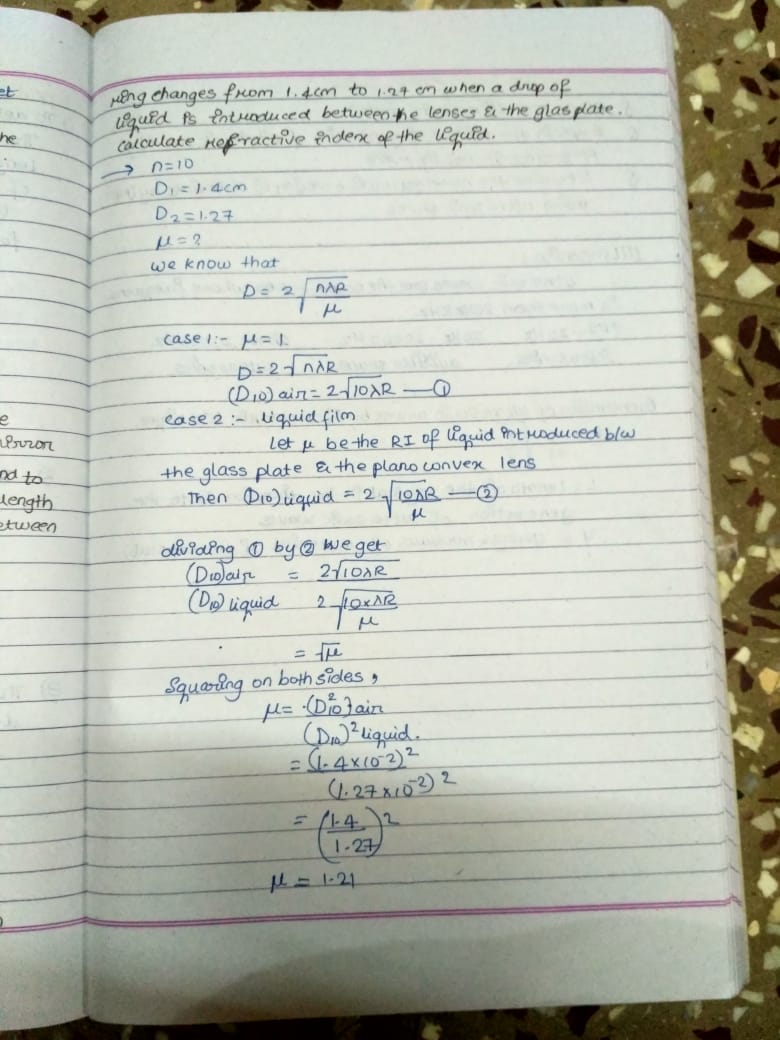 et
he
e
error
nd to
length
etween
ring changes from 1.4cm to 1.27 cm when a drop of
liquid is introduced between the lenses & the glas plate.
calculate refractive index of the liquid.
→ n=10
D₁ = 1.4cm
D₂ = 1.27
μ = ?
we know that
D = 2 √(nλR/μ)
case 1:- μ = 1.
D = 2√nλR
(D₁₀) air = 2√10λR —①
case 2:- liquid film
Let μ be the RI of liquid introduced b/w
the glass plate & the plano convex lens
Then (D₁₀) liquid = 2 √(10λR/μ) —②
dividing ① by ② we get
(D₁₀) air = 2√10λR
(D₁₀) liquid 2 √(10×λR/μ)
= √μ
Squaring on both sides,
μ = (D₁₀²) air
(D₁₀)² liquid.
= (1.4×10⁻²)²
(1.27×10⁻²)²
= (1.4/1.27)²
μ = 1.21